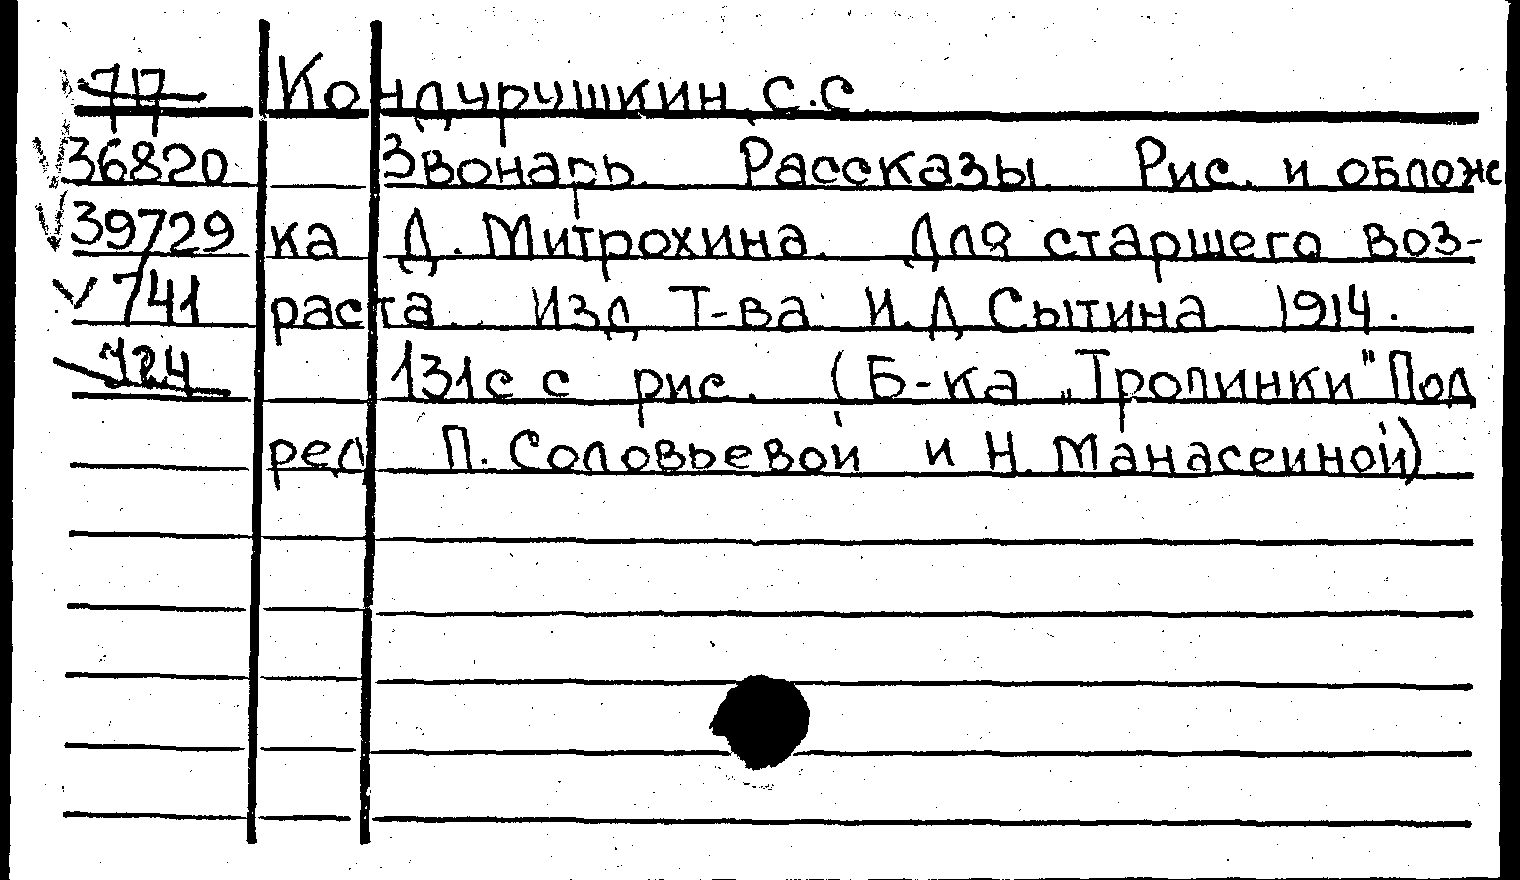 717 Кондурушкин, С.С
36820 Звонарь. Рассказы. Рис. и облож
39729 ка Д. Митрохина. Для старшего воз-
741 раста. Изд Т-ва И.Д Сытина 1914.
131с с рис. (Б-ка „Тропинки" Под
ред П. Соловьевой и Н. Манасеиной)